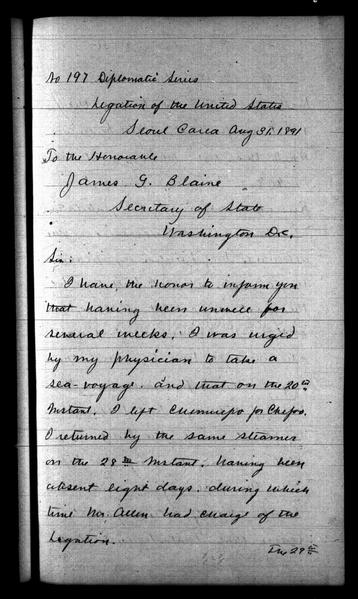 No 197 Diplomatic Series
Legation of the United States
Seoul Corea Aug 31, 1891
To the Honorable
James G. Blaine
Secretary of State
Washington D.C.
Sir:
I have, the honor to inform you
that having been unwell for
several weeks, I was urged
by my physician to take a
sea-voyage. and that on the 20th
Instant, I left Chemulpo for Chefoo.
I returned by the same steamer
on the 28th Instant, having been
absent eight days, during which
time Mr. Allen had charge of the
Legation.
29th